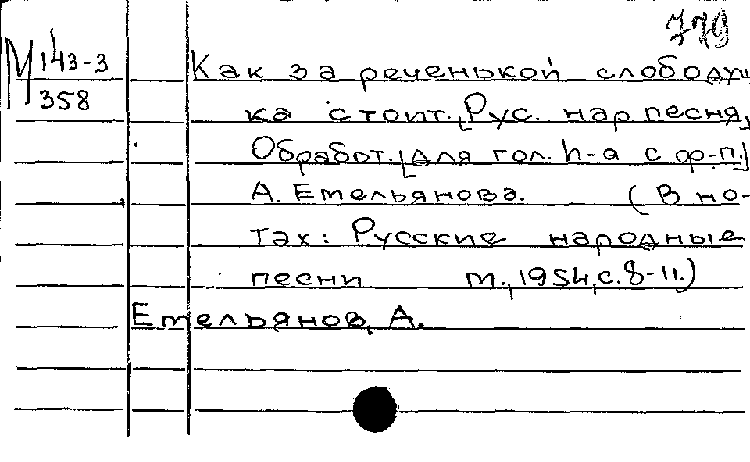 779
М 143-3
358
Как за реченькой слободуш
ка стоит. [Рус. нар песня,
Обработ. [для гол. h-а с ф-п.]
А. Емельянова. (В но-
тах: Русские народные
песни м., 1954, с. 8-11.)
Емельянов, А.